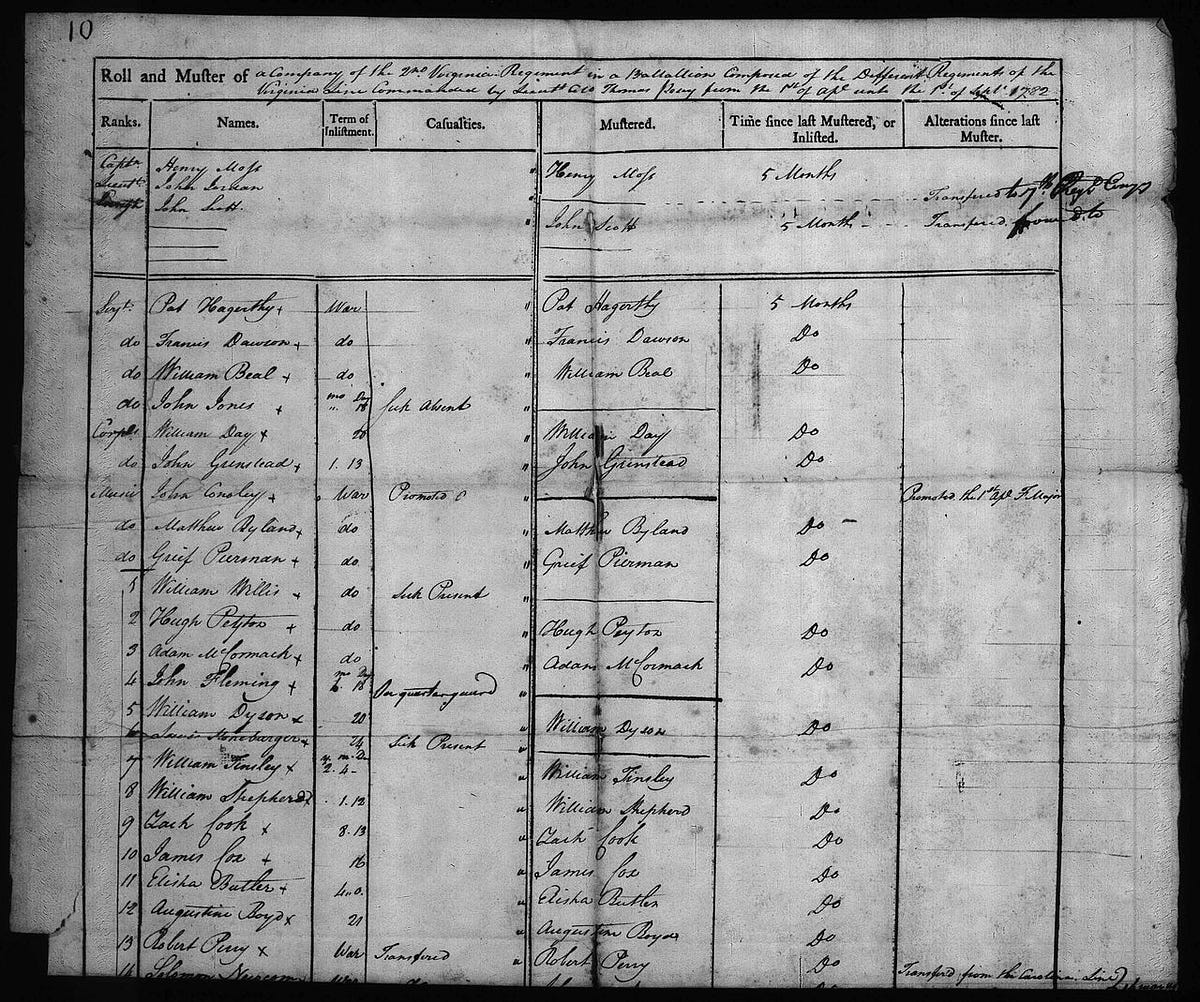 10
Roll and Muster of a Company of the 2nd Virginia Regiment in a Battallion Composed of the Different Regiments of the
Virginia Line Commanded by Lieutt Colo Thomas Posey from the 1st of Apl unto the 1st of Sepbr 1782
Ranks. Names. Term of Inlistment. Casualties. Mustered. Time since last Mustered, or Inlisted. Alterations since last Muster.
Captn Henry Moss " Henry Moss 5 Months
Lieutt John Jordan " Transfered to 7th Regt
John Scott " John Scott 5 Months Transfered from do to
Serjt Pat Hagerthy + War " Pat Hagerthy 5 Months
do Francis Dawson + do " Francis Dawson Do
do William Beal + do " William Beal Do
do John Jones + mo Dy " 18 Sick Absent "
Corpl William Day + 20 " William Day Do
do John Grinstead + 1. 13 " John Grinstead Do
Music John Conoley + War Promoted " Promoted the 1st Apl F. Major
do Matthew Byland + do " Matthew Byland Do
do Grief Pierman + do " Grief Pierman Do
1 William Willis + do Sick Present "
2 Hugh Peyton + do " Hugh Peyton Do
3 Adam McCormack + do " Adam McCormack Do
4 John Fleming + mo Dy 6. 18 On quarter guard "
5 William Dyson + 20 " William Dyson Do
6 24 Sick Present "
7 William Tinsley + y. m. D 2. 4 - " William Tinsley Do
8 William Shepherd + 1. 12 " William Shepherd Do
9 Zach Cook + 8. 13 " Zach Cook Do
10 James Cox + 16 " James Cox Do
11 Elisha Butler + 4 " 0. " Elisha Butler Do
12 Augustine Boyd + 21 " Augustine Boyd Do
13 Robert Perry + War Transfered " Robert Perry Do Transfered from the Carolina Line
14 Solomon